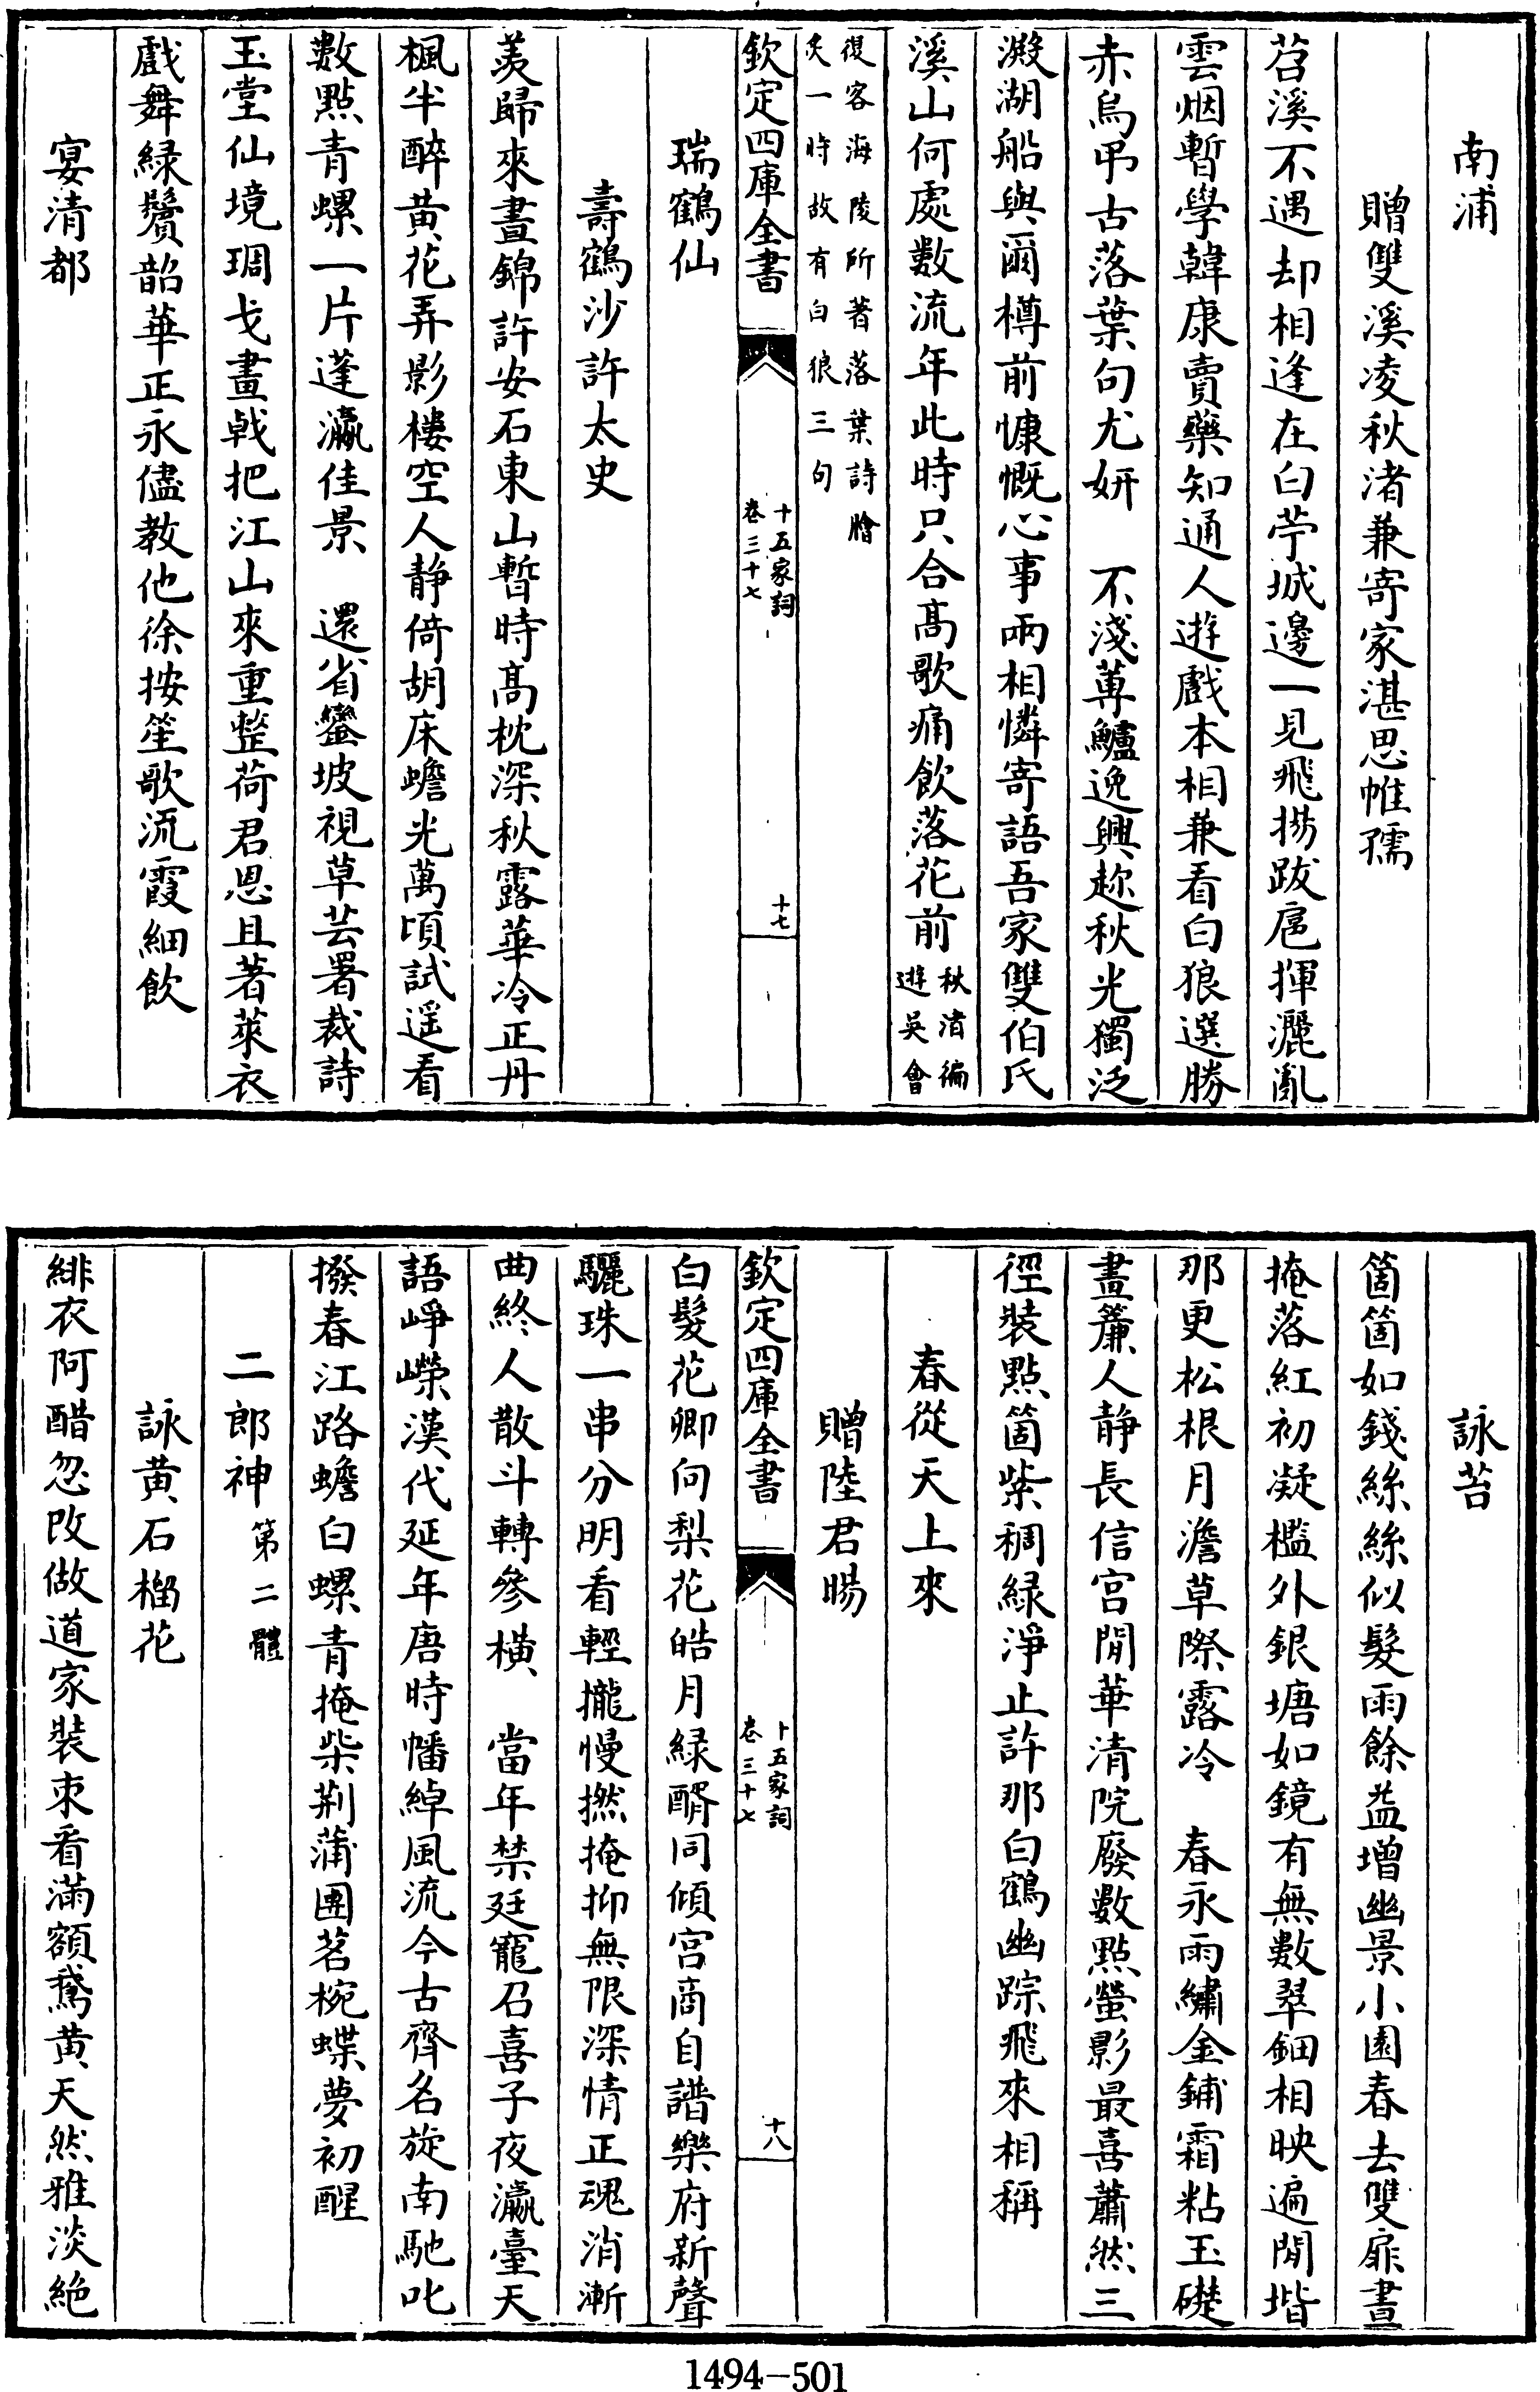 南浦
贈雙溪凌秋渚兼寄家湛思帷孺
苕溪不遇却相逢在白苧城邊一見飛揚跋扈揮灑亂
雲烟暫學韓康賣藥知通人遊戲本相兼看白狼選勝
赤烏弔古落葉句尤妍　不淺蓴鱸逸興趂秋光獨泛
澱湖船與爾樽前慷慨心事兩相憐寄語吾家雙伯氏
溪山何處數流年此時只合高歌痛飲落花前秋渚徧
遊吳會
復客海陵所著落葉詩膾
炙一時故有白狼三句
欽定四庫全書
十五家詞
卷三十七
十七
瑞鶴仙
壽鶴沙許太史
羨歸來晝錦許安石東山暫時高枕深秋露華冷正丹
楓半醉黄花弄影樓空人靜倚胡床蟾光萬頃試遥看
數點青螺一片蓬瀛佳景　還省鑾坡視草芸署裁詩
玉堂仙境琱戈畫戟把江山來重整荷君恩且著萊衣
戲舞緑鬢韶華正永儘教他徐按笙歌流霞細飲
宴清都
詠苔
箇箇如錢絲絲似髮雨餘益增幽景小園春去雙扉晝
掩落紅初凝檻外銀塘如鏡有無數翠鈿相映遍閒堦
那更松根月澹草際露冷　春永雨繡金鋪霜粘玉礎
畫簾人靜長信宮閒華清院廢數點螢影最喜蕭然三
徑裝點箇紫稠緑淨止許那白鶴幽踪飛來相稱
春從天上來
贈陸君暘
白髮花卿向梨花皓月緑醑同傾宮商自譜樂府新聲
驪珠一串分明看輕攏慢撚掩抑無限深情正魂消漸
曲終人散斗轉參橫　當年禁廷寵召喜子夜瀛臺天
語崢嶸漢代延年唐時幡綽風流今古齊名旋南馳叱
撥春江路蟾白螺青掩柴荆蒲團茗椀蝶夢初醒
二郎神第二體
詠黄石榴花
緋衣阿醋忽改做道家裝束看滿額鵞黄天然雅淡絶
欽定四庫全書
十五家詞
卷三十七
十八
1494-501